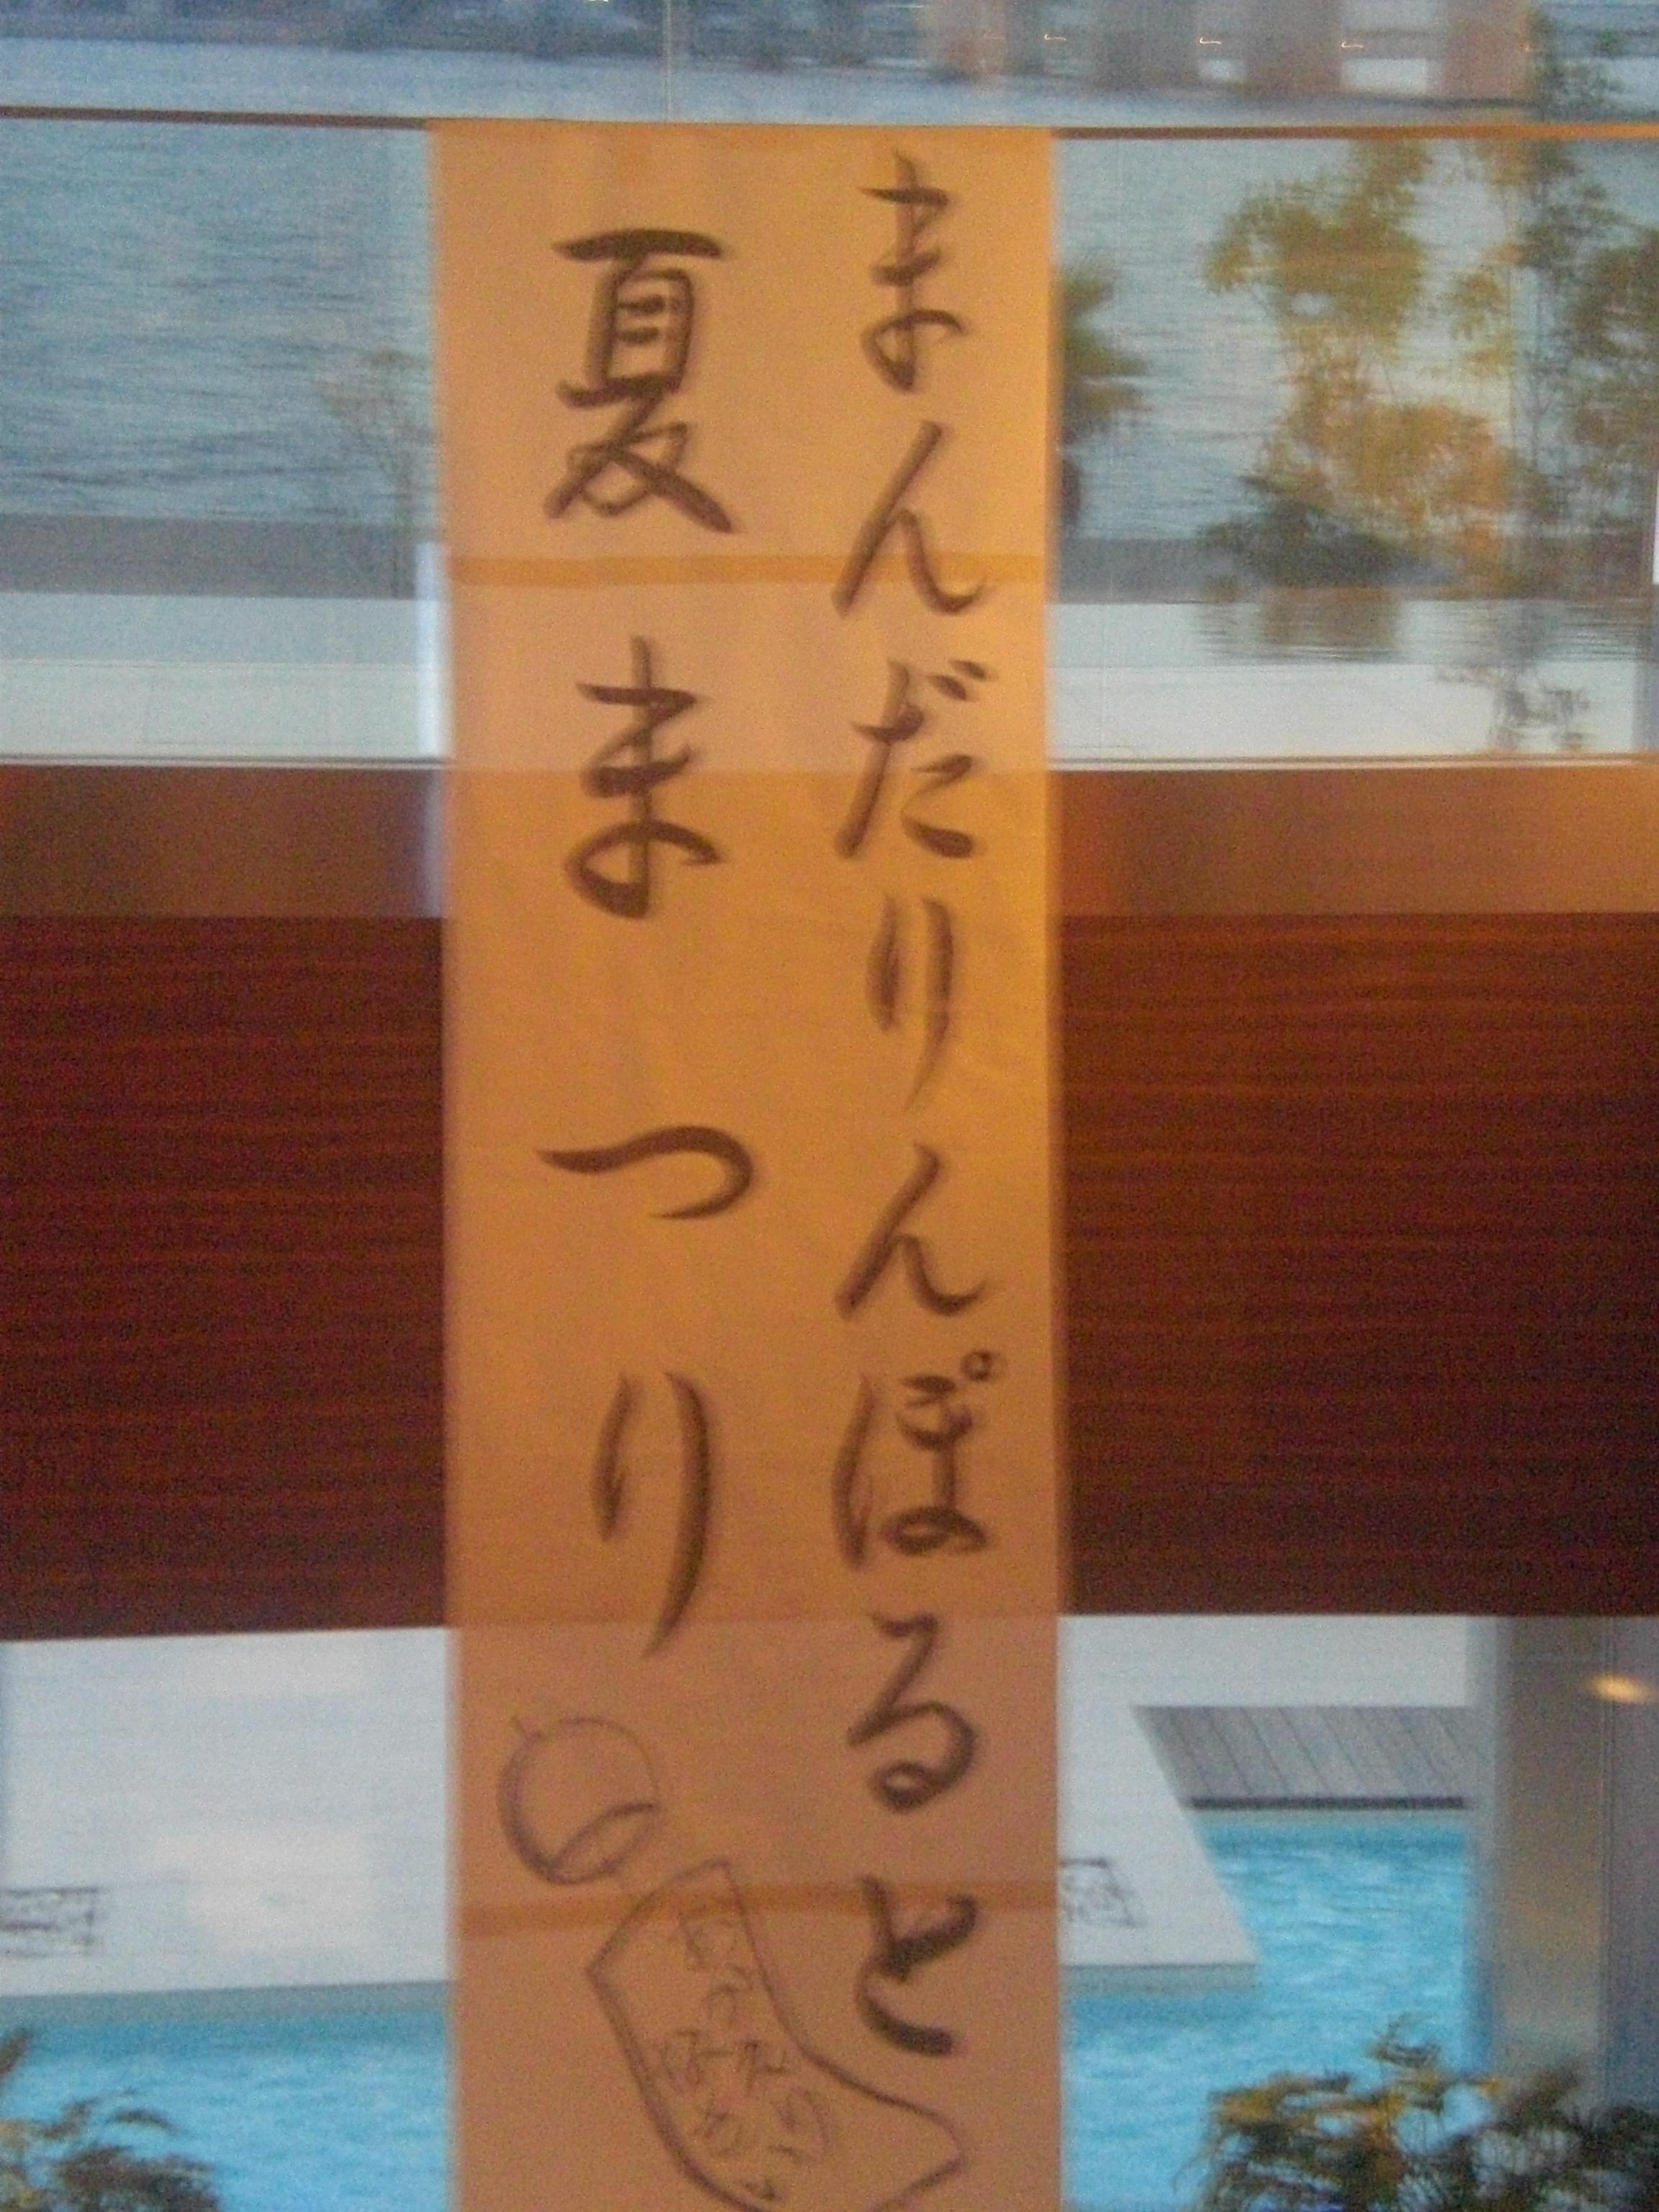 まんだりんぽると
夏まつり